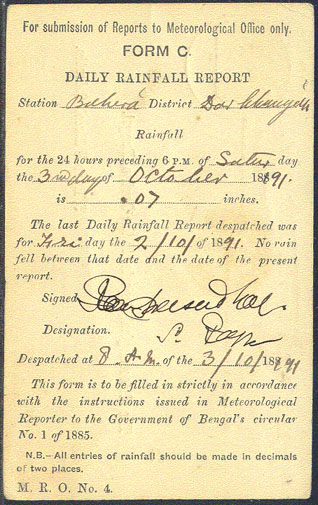 For submission of Reports to Meteorological Office only.
FORM C.
DAILY RAINFALL REPORT
Station Baherá District Darbhangah
Rainfall
for the 24 hours preceding 6 P.M. of Satur day
the 3rd day of October 1891.
is .07 inches.
The last Daily Rainfall Report despatched was
for Fri day the 2/10/ of 1891. No rain
fell between that date and the date of the present
report.
Signed
Designation.
Despatched at 8 A.M. of the 3/10/1891
This form is to be filled in strictly in accordance
with the instructions issued in Meteorological
Reporter to the Government of Bengal's circular
No. 1 of 1885.
N.B.– All entries of rainfall should be made in decimals
of two places.
M. R. O. No. 4.